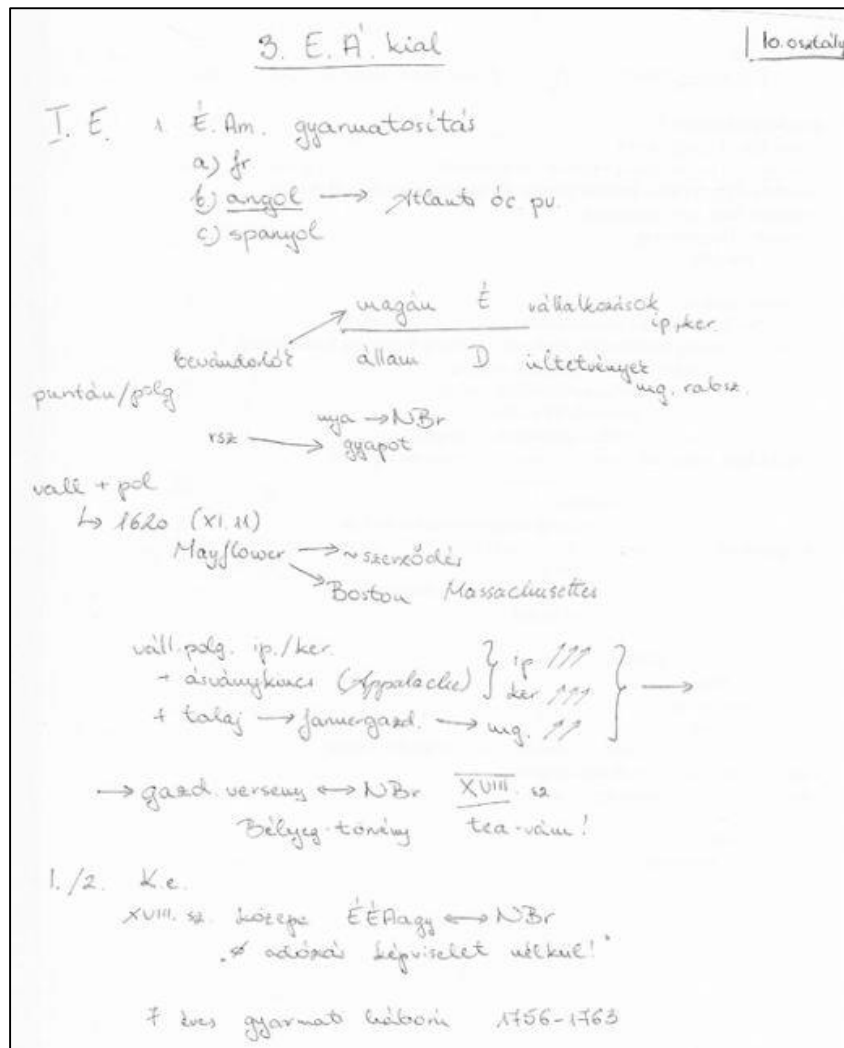 3. E. Á. kial
10. osztály
I. E. 1. É. Am. gyarmatosítás
a) fr
b) angol → Atlanti óc. pv.
c) spanyol
magán É vállalkozások
ip, ker.
bevándorlók állam D ültetvények
mg. rabsz.
puritán/polg
nya → NBr
rsz → gyapot
vall + pol
↳ 1620 (XI. 11)
Mayflower → ~ szerződés
→ Boston Massachusettes
váll. polg. ip./ker. } ip ↑↑↑ }
+ ásványkincs (Appalache) } ker. ↑↑↑ } →
+ talaj → farmergazd. → mg. ↑↑ }
→ gazd. verseny ↔ NBr XVIII. sz
Bélyeg-törvény tea-vám!
I./2. K.e.
XVIII. sz. közepe ÉÉAagy ↔ NBr
„∅ adózás képviselet nélkül!"
7 éves gyarmati háború 1756-1763